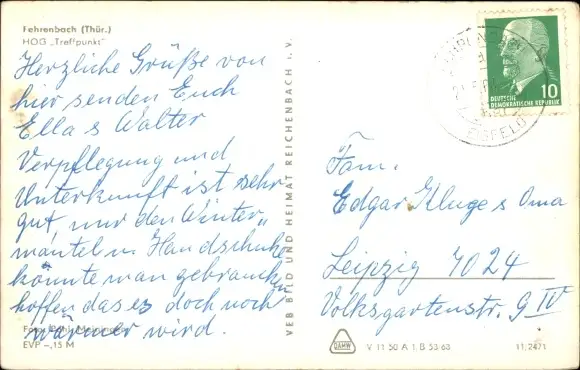 Fehrenbach (Thür.)
HOG „Treffpunkt"
Herzliche Grüße von
hier senden Euch
Ella s Walter
Verpflegung und
Unterkunft ist sehr
gut, nur den Winter„
mantel u Handschuhe
könnte man gebrauchen
hoffen das es doch noch
wärmer wird.
EVP –,15 M
VEB BILD UND HEIMAT REICHENBACH i. V.
DEUTSCHE
DEMOKRATISCHE REPUBLIK
10
EISFELD
Fam.
Edgar Kluge s Oma
Leipzig 7024
Volksgartenstr. 9 IV
V 11 50 A 1 B 53 63
11/2471